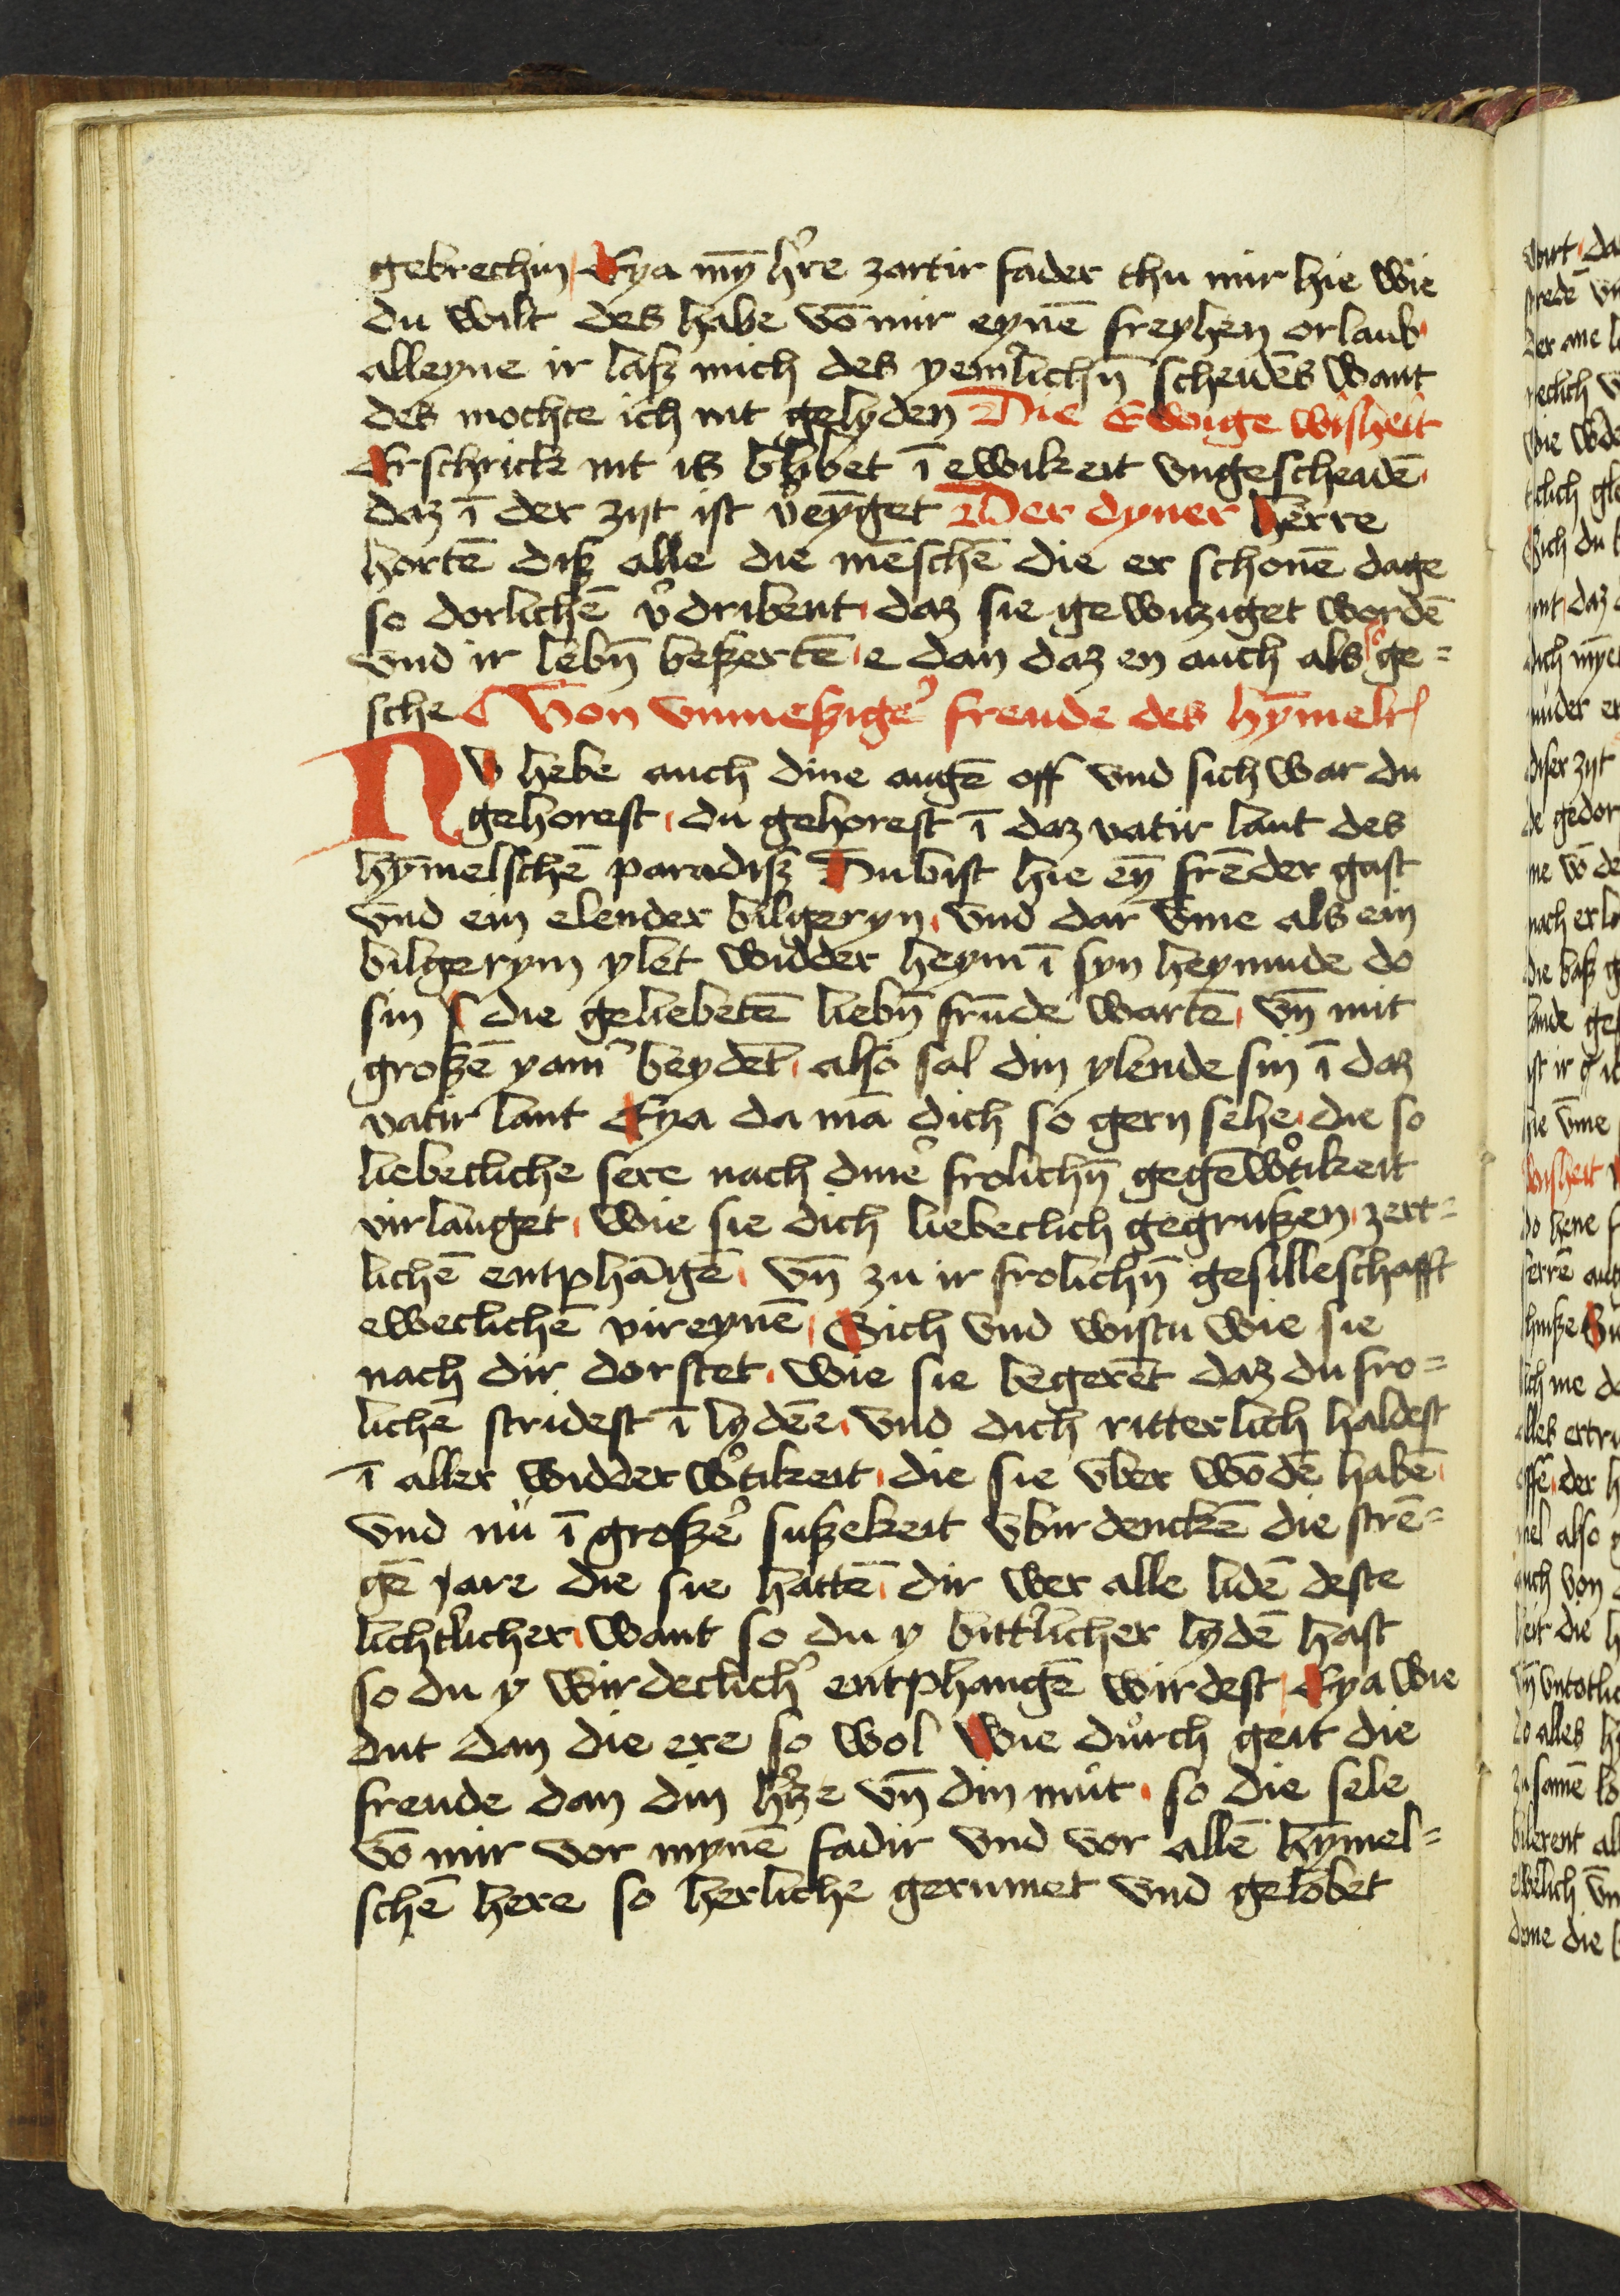 gebrechin Eya mȳ h̉re zartir fader thu mir hie wie
du wilt des habe vō mir eynē freyhen orlaub
alleyne ir lasz mich des yem̉lichn̄ scheidēs want
des mochte ich nit gelyden Die Ewige wisheit
Erschrick nit is blibet ī ewikeit vngescheidē
daz ī der zijt ist v̉eyget Der dyner herre
hortē disz alle die mēschē die er schonē dage
so dorlichē v̉dribent daz sie gewitziget wordē
vnd ir lebn̄ beszertē e dan daz en auch also ge=
sche Von vnmeszigẻ freude des hȳmelr
Nv hebe auch dine augē off vnd sich war du
gehorest du gehorest ī daz vatir lant des
hȳmelschē paradisz Du bist hie eȳ frēder gast
vnd ein elender bilgeryn vnd dar vme als ein
bilgerym ylet widder heym ī syn heymude do
sin die geliebetē liebn̄ frūde wartē vn̄ mit
groszē yam̉ beydēt also sal din ylende sin ī daz
vatir lant Eya da mā dich so gern sehe die so
liebecliche sere nach dinẻ frolichn̄ gegēw̉tikeit
virlanget wie sie dich liebeclich gegruszen zert=
lichē entphāgē vn̄ zu ir frolichn̄ gesilleschafft
eweclichē vireynē Sich vnd wistu wie sie
nach dir dorstet wie sie begerēt daz du fro=
lichē stridest ī lydēe vnd dich ritterlich haldest
ī aller widderw̉tikeit die sie vber wōdē habē
vnd nu ī groszẻ suszekeit vbirdenckē die strē=
gē jare die sie hattē dir wer alle lidē deste
licht̉licher want so du y bitt̉licher lydē hast
so du y wirdeclich̉ entphangē wirdest Eya wie
dut dan die ere so wol wie durch geit die
freude dan din h̉tze vn̄ din mut so die sele
vō mir vor mynē fadir vnd vor allē hȳmel=
schē here so herliche gerumet vnd gelobet